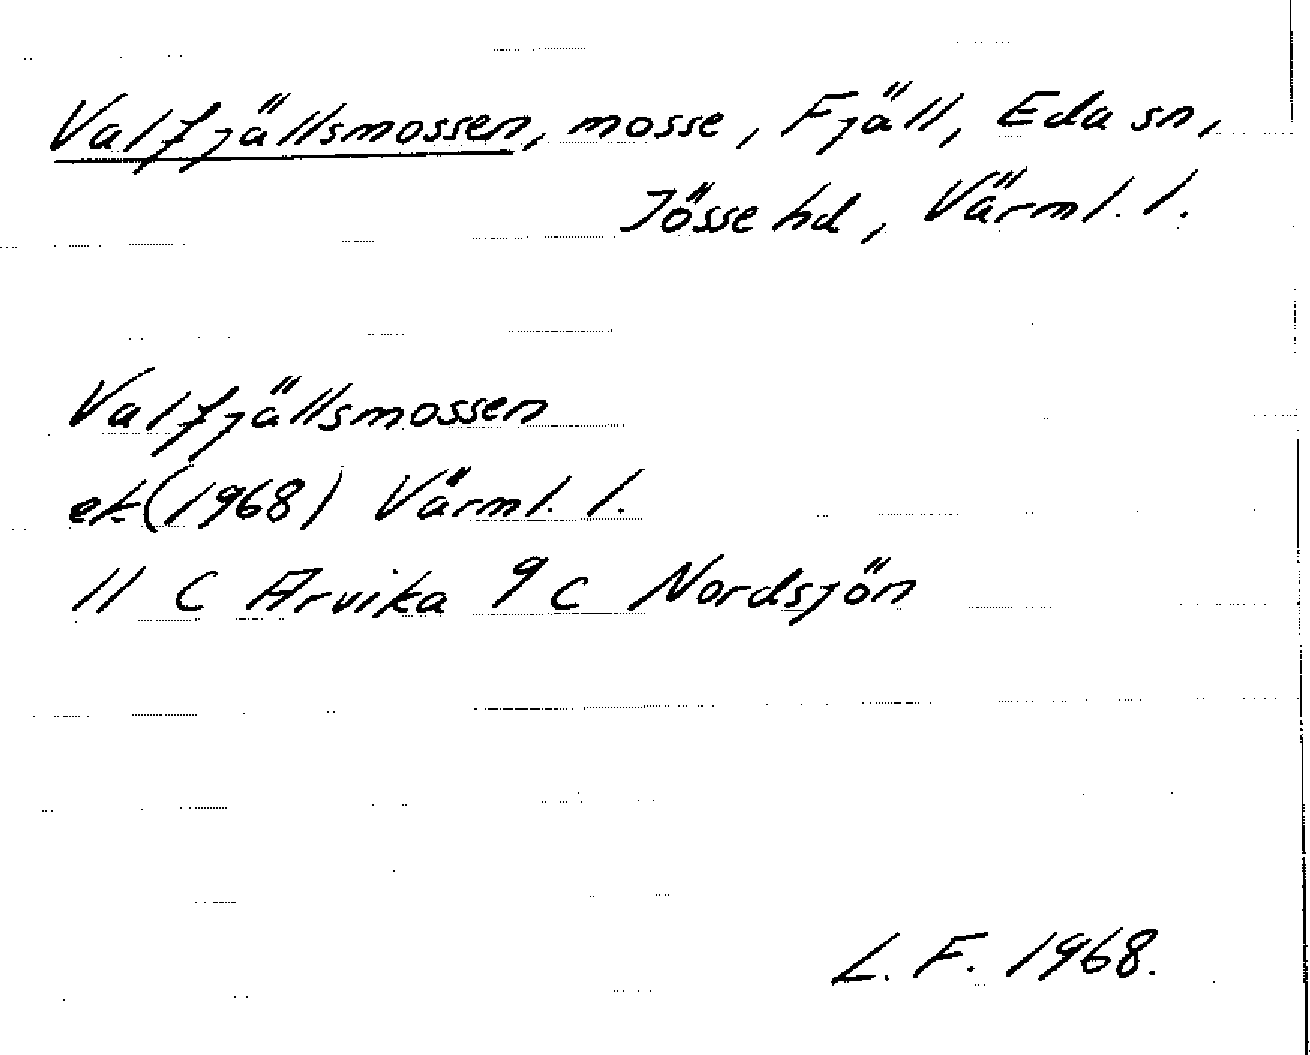 Valfjällsmossen, mosse, Fjäll, Eda sn,
Jösse hd, Värml. l.
Valfjällsmossen
ek (1968) Värml. l.
11 C Arvika 9 c Nordsjön
L. F. 1968.